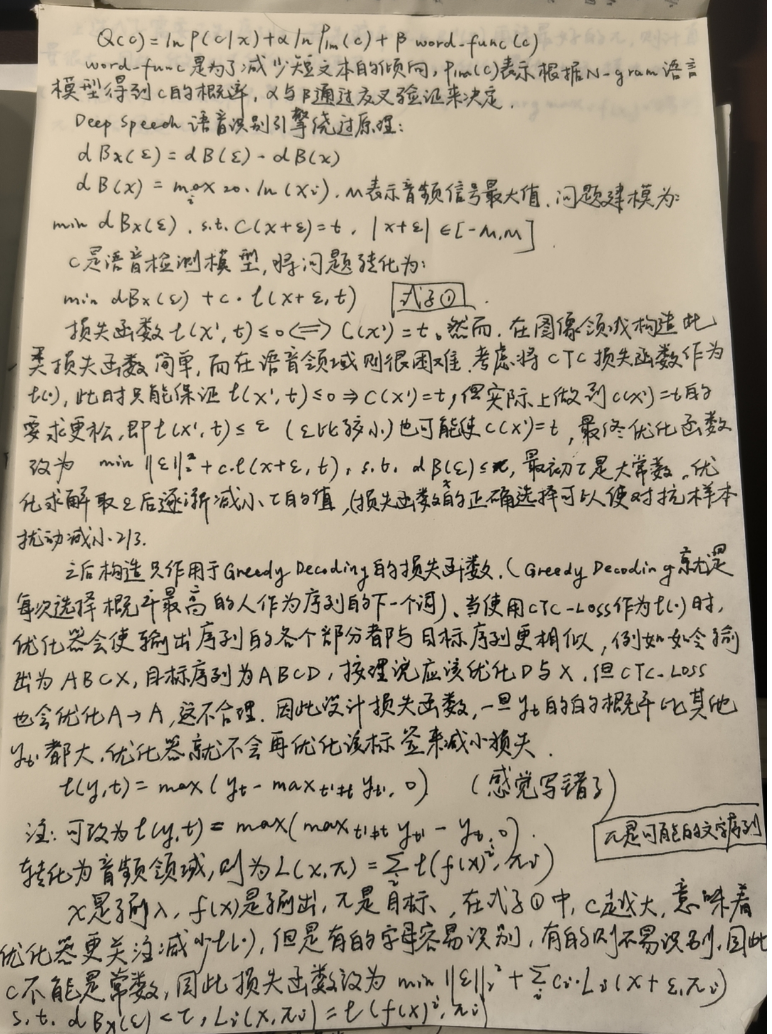 Q(c) = ln P(c|x) + α ln Plm(c) + β word-func(c)
word-func是为了减少短文本的倾向, Plm(c)表示根据N-gram语言
模型得到c的概率, α与β通过交叉验证来决定.
Deep Speech 语音识别引擎绕过原理:
dBx(ε) = dB(ε) - dB(x)
dB(x) = max_i 20·ln(xi). M表示音频信号最大值. 问题建模为:
min dBx(ε). s.t. C(x+ε)=t. |x+ε| ∈[-M,M]
C是语音检测模型, 将问题转化为:
min dBx(ε) + c·ℓ(x+ε,t) 式子①.
损失函数ℓ(x',t)≤0⟺C(x')=t。然而, 在图像领域构造此
类损失函数简单, 而在语音领域则很困难. 考虑将CTC损失函数作为
ℓ(·), 此时只能保证ℓ(x',t)≤0⇒C(x')=t, 但实际上做到C(x')=t的
要求更松, 即ℓ(x',t)≤ε (ε比较小)也可能使C(x')=t, 最终优化函数
改为 min ||ε||₂²+c·ℓ(x+ε,t), s.t. dB(ε)≤τ, 最初τ是大常数, 优
化求解取ε后逐渐减小τ的值, (损失函数的正确选择可以使对抗样本
扰动减小2/3.
之后构造只作用于Greedy Decoding的损失函数. (Greedy Decoding就是
每次选择概率最高的人作为序列的下一个词)、当使用CTC-Loss作为ℓ(·)时,
优化器会使输出序列的各个部分都与目标序列更相似, 例如如令输
出为ABCX, 目标序列为ABCD, 按理说应该优化D与X, 但CTC-Loss
也会优化A→A, 这不合理. 因此设计损失函数, 一旦yt的的概率比其他
yt'都大, 优化器就不会再优化该标签来减小损失.
ℓ(y,t) = max(yt - max_{t'≠t} yt', 0) (感觉写错了)
注: 可改为ℓ(y,t) = max(max_{t'≠t} yt' - yt, 0). π是可能的文字序列
转化为音频领域, 则为L(x,π) = Σ_i ℓ(f(x)^i, πi)
x是输入, f(x)是输出, π是目标, 在式子①中, c越大, 意味着
优化器更关注减少ℓ(·), 但是有的字母容易识别, 有的则不易识别, 因此
c不能是常数, 因此损失函数改为 min ||ε||₂² + Σ_i ci·Li(x+ε,πi)
s.t. dBx(ε)<τ, Li(x,πi) = ℓ(f(x)^i, πi)